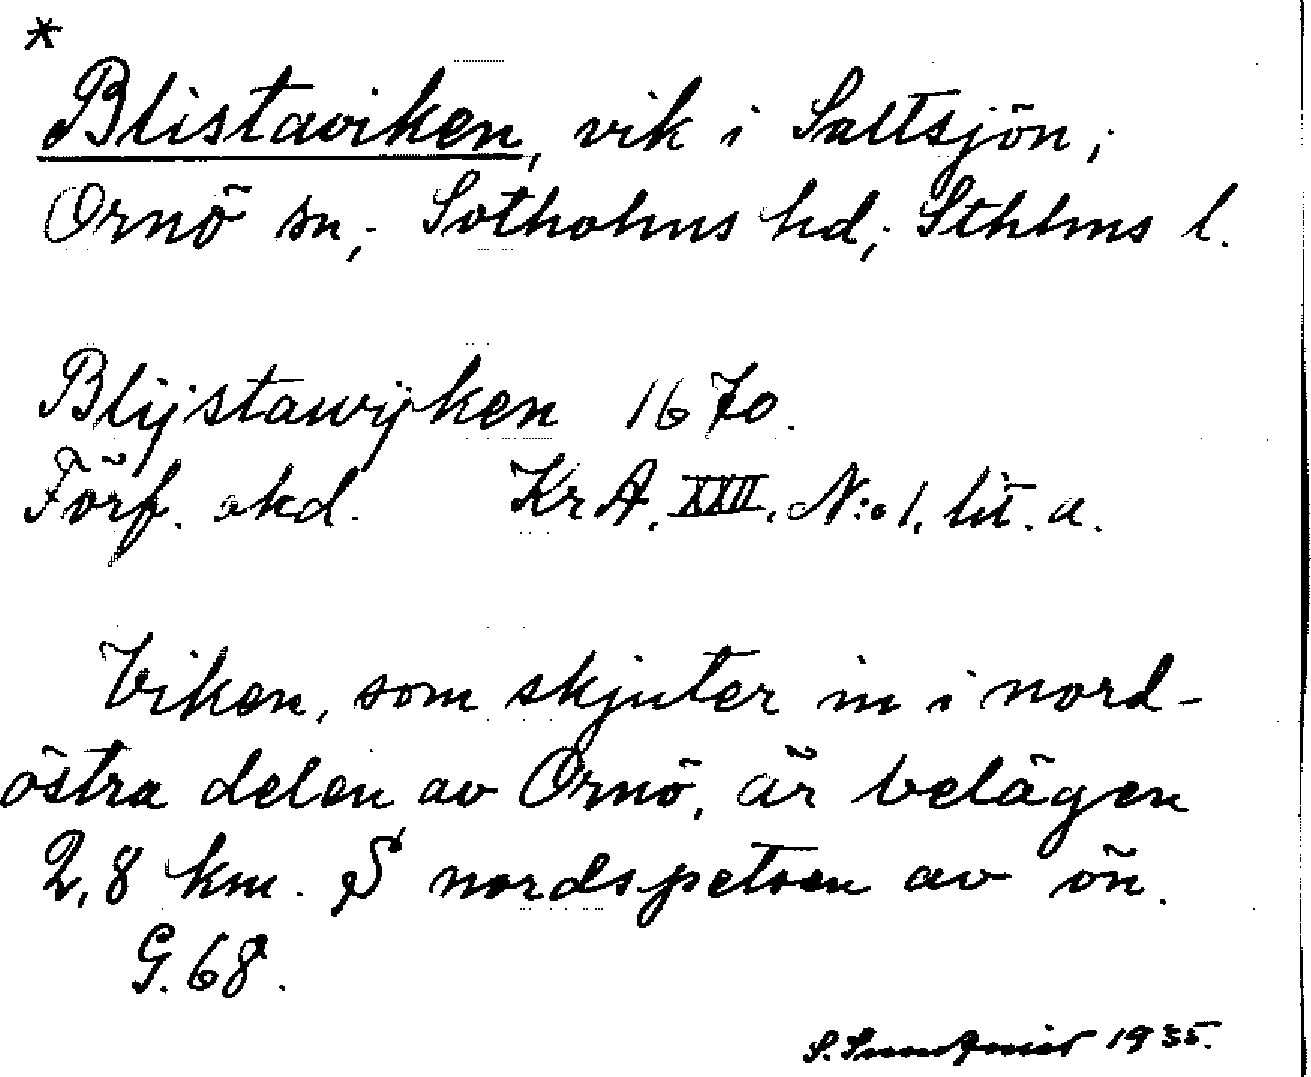 *
Blistaviken, vik i Saltsjön;
Ornö sn; Sotholms hd; Sthlms l.
Blijstawijken 1670.
Förf. okd. Kr A. XXII. N:o 1, lit. a.
Viken, som skjuter in i nord-
östra delen av Ornö, är belägen
2,8 km. S nordspetsen av ön.
G. 68.
S. Sundqvist 1935.